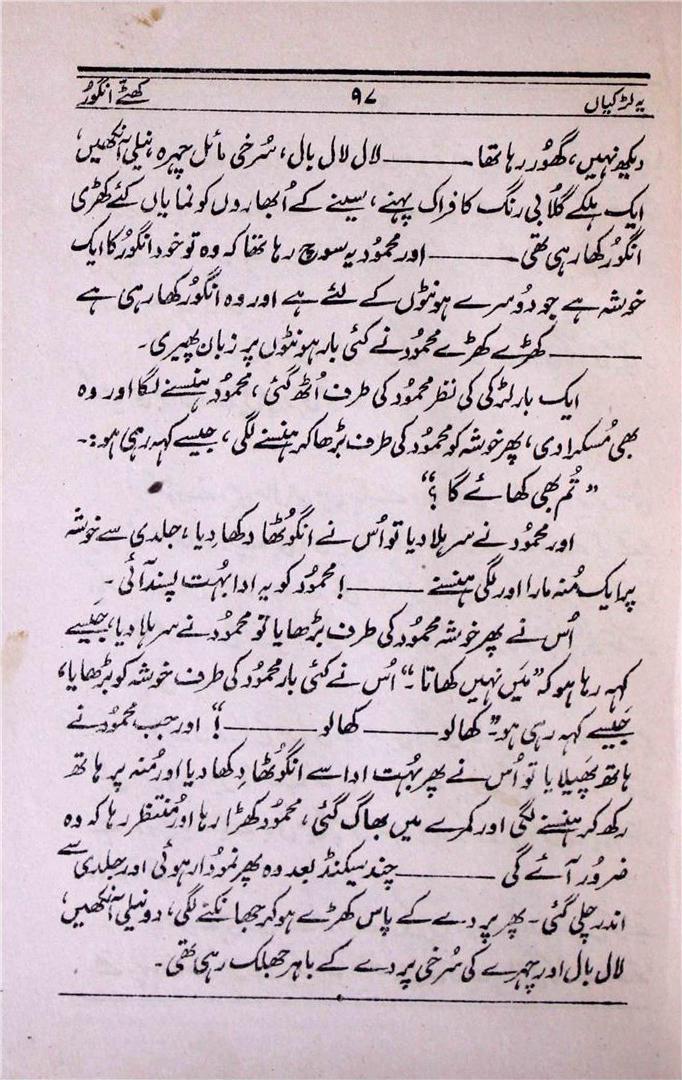 یہ لڑکیاں ۹۷ کھٹے انگور
دیکھ نہیں، گھور رہا تھا ـــــــ لال لال بال، سُرخی مائل چہرہ، نیلی آنکھیں،
ایک ہلکے گلابی رنگ کا فراک پہنے، سینے کے اُبھاروں کو نمایاں کئے کھڑی
انگور کھا رہی تھی ـــــــ اور محمُود یہ سوچ رہا تھا کہ وہ تو خود انگوُر کا ایک
خوشہ ہے جو دُوسرے ہونٹوں کے لئے ہے اور وہ انگوُر کھا رہی ہے
ـــــــ کھڑے کھڑے محموُد نے کئی بار ہونٹوں پر زبان پھیری۔
ایک بار لڑکی کی نظر محموُد کی طرف اُٹھ گئی، محموُد ہنسنے لگا اور وہ
بھی مُسکرا دی، پھر خوشہ کو محموُد کی طرف بڑھا کر ہنسنے لگی، جیسے کہہ رہی ہو:۔
”تُم بھی کھائے گا؟“
اور محموُد نے سر ہلا دیا تو اُس نے انگوُٹھا دکھا دِیا، جلدی سے خوشہ
پر ایک مُنہ مارا اور لگی ہنسنے ـــــــ! محموُد کو یہ ادا بہُت پسند آئی۔
اُس نے پھر خوشہ محموُد کی طرف بڑھایا تو محموُد نے سر ہلا دیا، جَیسے
کہہ رہا ہو کہ ”مَیں نہیں کھاتا۔“ اُس نے کئی بار محموُد کی طرف خوشہ کو بڑھایا،
جَیسے کہہ رہی ہو ”کھالو ـــــــ کھالو ـــــــ!“ اور جب محموُد نے
ہاتھ پھَیلایا تو اُس نے پھر بہُت ادا سے انگوُٹھا دِکھا دیا اور مُنہ پر ہاتھ
رکھ کر ہنسنے لگی اور کمرے میں بھاگ گئی، محموُد کھڑا رہا اور مُنتظر رہا کہ وہ
ضروُر آئے گی ـــــــ چند سیکنڈ بعد وہ پھر نموُدار ہوئی اور جلدی سے
اندر چلی گئی۔ پھر پردے کے پاس کھڑے ہو کر جھانکنے لگی، دو نیلی آنکھیں،
لال بال اور چہرے کی سُرخی پردے کے باہر جھلک رہی تھی۔